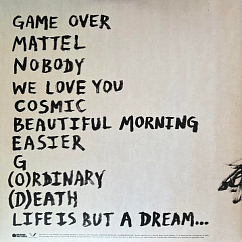 GAME OVER
MATTEL
NOBODY
WE LOVE YOU
COSMIC
BEAUTIFUL MORNING
EASIER
G
(O)RDINARY
(D)EATH
LIFE IS BUT A DREAM...